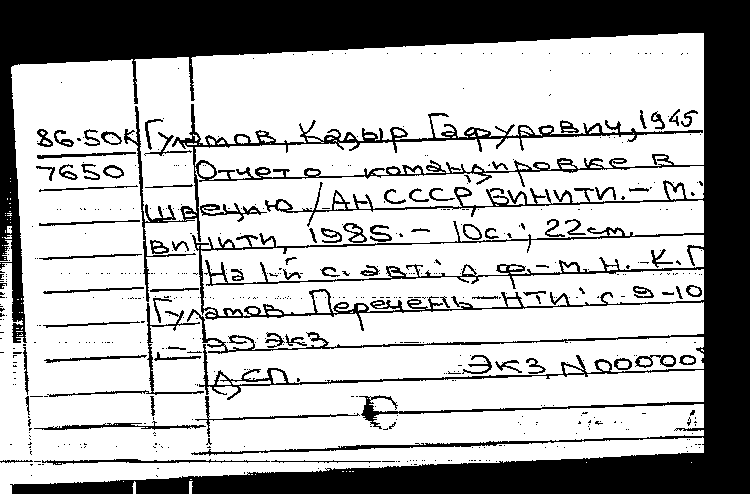 86-50К Гулямов, Кадыр Гафурович, 1945
7650 Отчет о командировке в
Швецию / АН СССР, ВИНИТИ. - М.:
ВИНИТИ, 1985. - 10с.; 22см.
На 1-й с. авт.: д. ф.-м. н. - К.Г.
Гулямов. Перечень НТИ: с. 9-10
. - 99 экз.
ДСП. Экз. N 00000